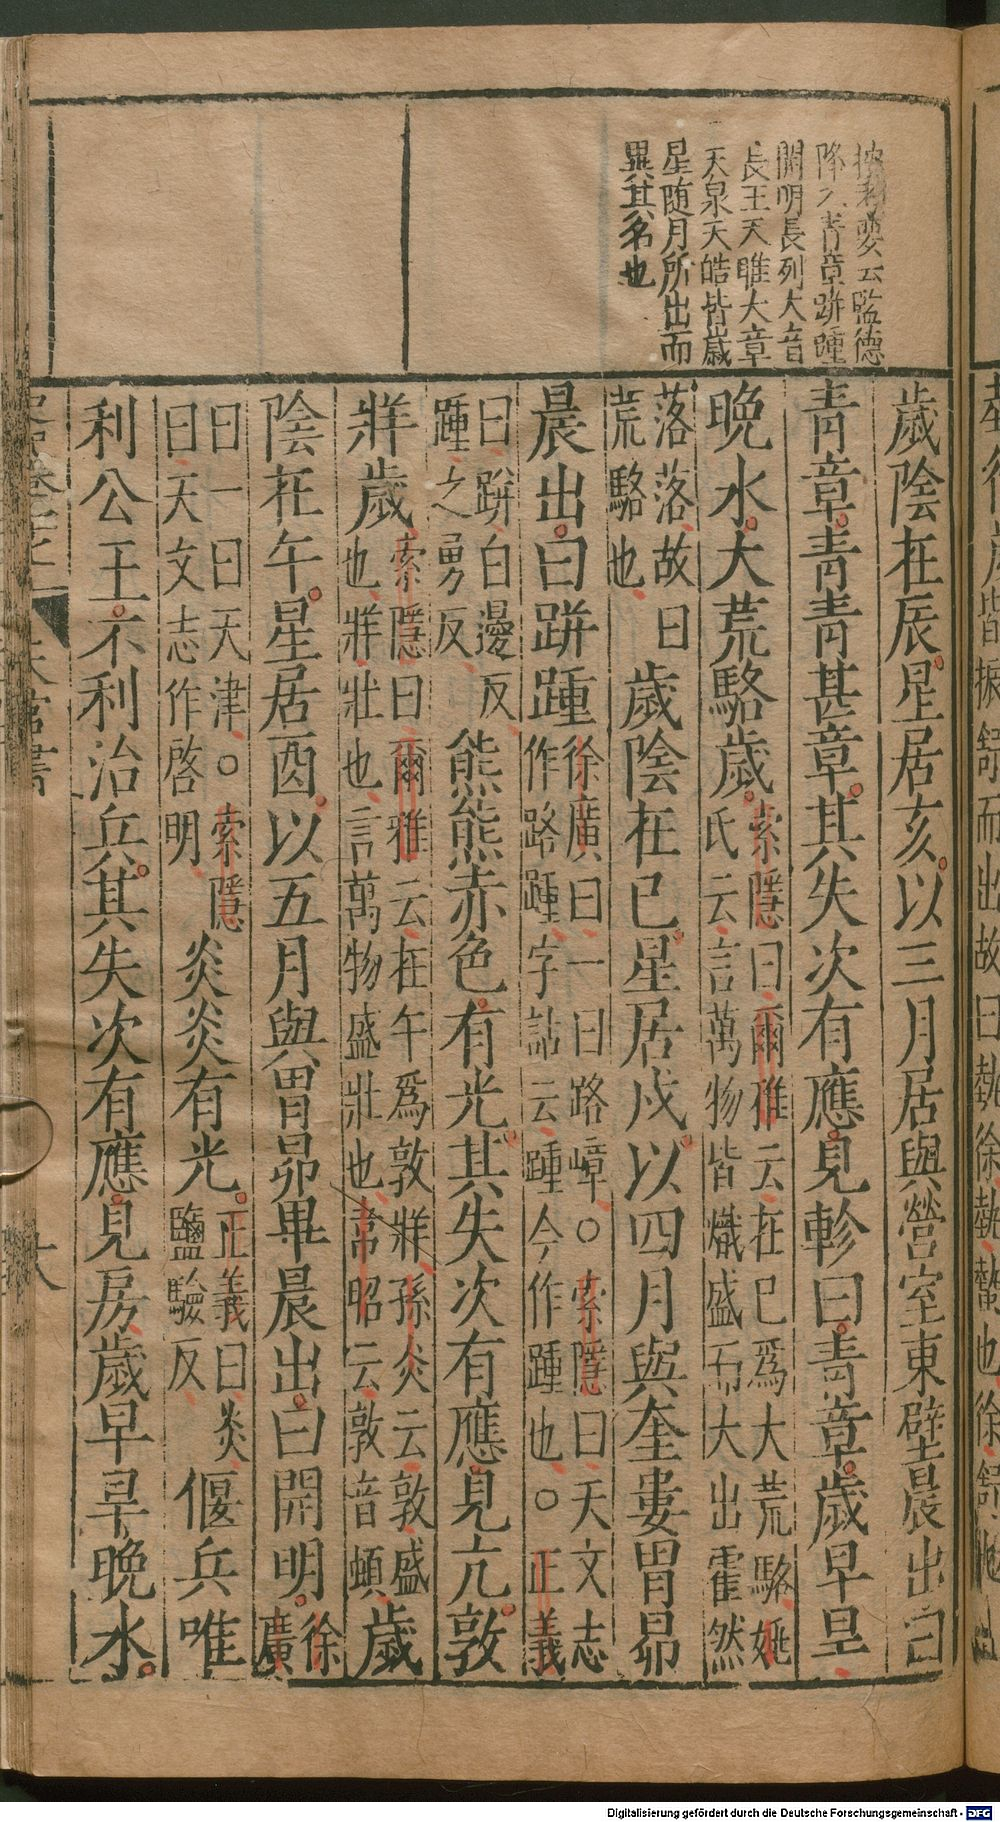 按利變云監德
降入青章跰踵
開明長列大音
長王天睢大章
天泉天皓皆歲
星随月所出而
異其名也
歲陰在辰星居亥以三月居與營室東壁晨出曰
青章青青甚章其失次有應見軫曰青章歲早旱
晚水大荒駱歲索隱曰爾雅云在巳爲大荒駱姚
氏云言萬物皆熾盛而大出霍然
落落故曰
荒駱也歲陰在巳星居戌以四月與奎婁胃昴
晨出曰跰踵徐廣曰一曰路嶂○索隱曰天文志
作路踵字詁云踵今作踵也○正義
曰跰白邊反
踵之勇反熊熊赤色有光其失次有應見亢敦
牂歲索隱曰爾雅云在午爲敦牂孫炎云敦盛
也牂壯也言萬物盛壯也韋昭云敦音頓歲
陰在午星居酉以五月與胃昴畢晨出曰開明徐
廣
曰一曰天津○索隱
曰天文志作啓明炎炎有光正義曰炎
鹽驗反偃兵唯
利公王不利治兵其失次有應見房歲早旱晚水
天官書
六
Digitalisierung gefördert durch die Deutsche Forschungsgemeinschaft - DFG